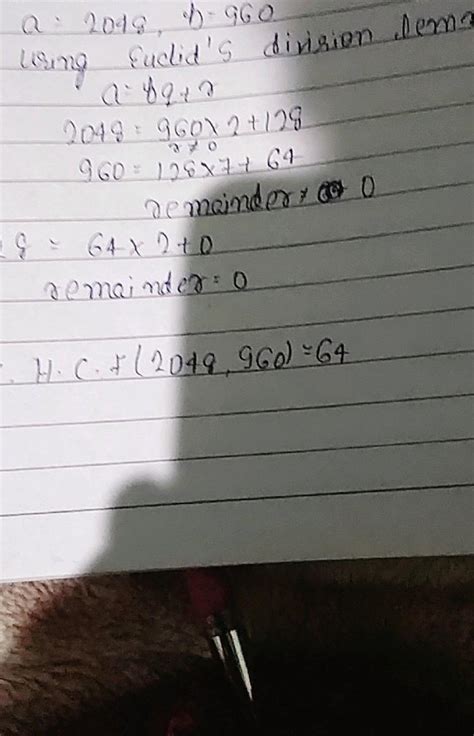 a = 2048, b = 960
Using Euclid's division lema
a = bq + r
2048 = 960 × 2 + 128
r ≠ 0
960 = 128 × 7 + 64
remainder ≠ 0
8 = 64 × 2 + 0
remainder = 0
. H. C. f (2048, 960) = 64